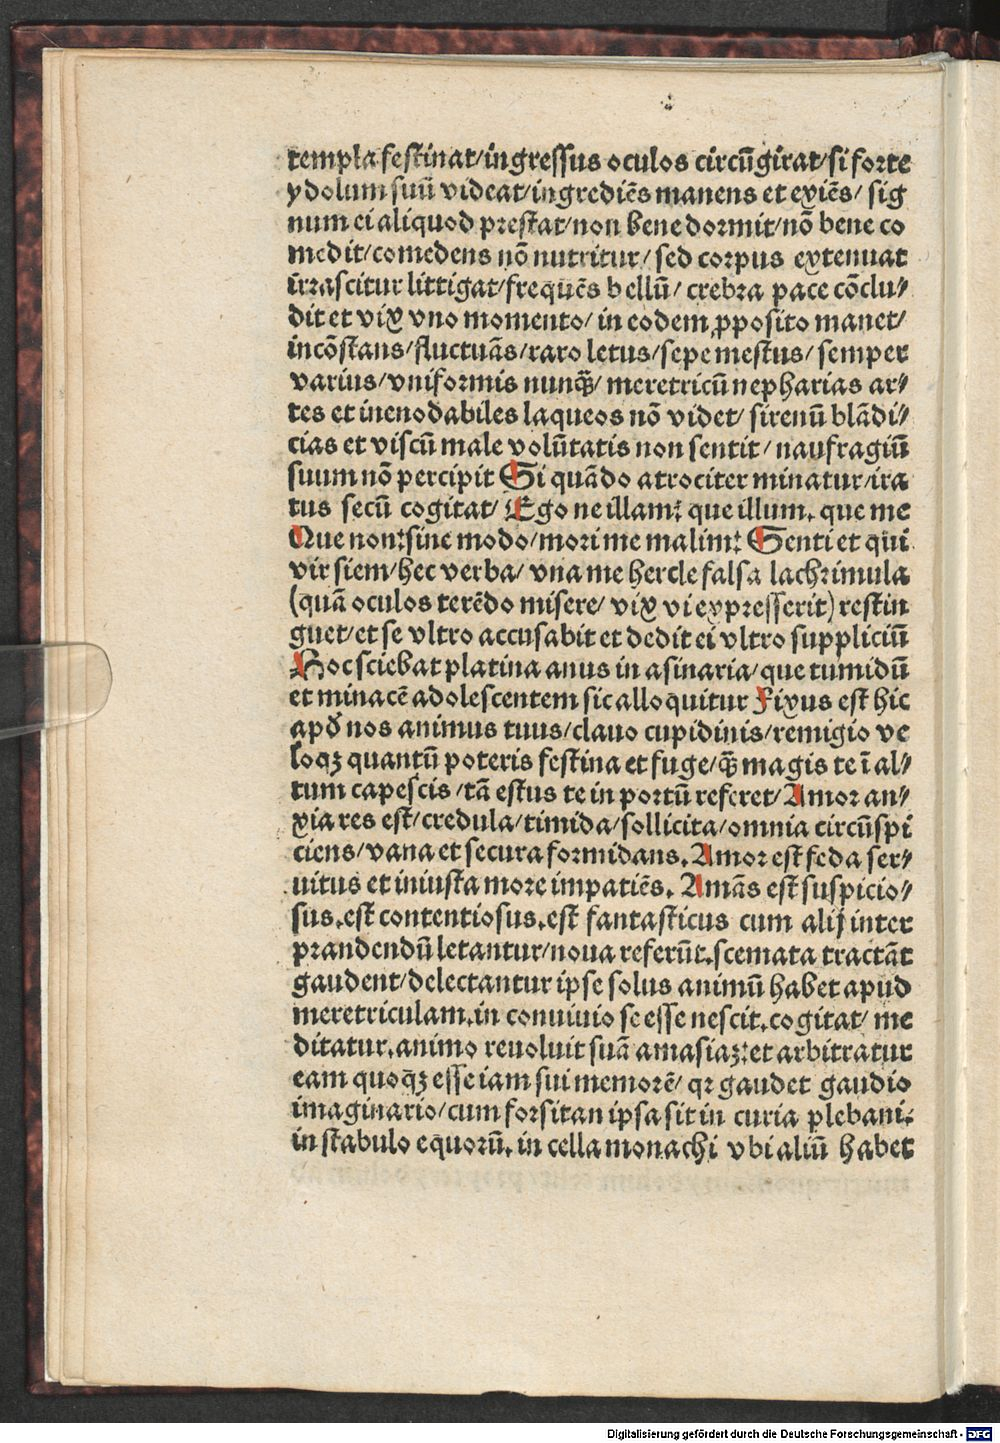 templa festinat/ingressus oculos circūgirat/si forte
ydolum suū videat/ingrediēs manens et exiēs/ sig
num ei aliquod prestat/non bene dormit/nō bene co
medit/comedens nō nutritur/ sed corpus extenuat
irrascitur littigat/frequēs bellū/ crebra pace cōclu⸗
dit et vix vno momento/ in eodem ꝓposito manet/
incōstans/fluctuās/raro letus/sepe mestus/ semper
varius/vniformis nunq̄/ meretricū nepharias ar⸗
tes et inenodabiles laqueos nō videt/ sirenū blādi⸗
cias et viscū male volūtatis non sentit/ naufragiū
suum nō percipit Si quādo atrociter minatur/ira
tus secū cogitat/ Ego ne illam: que illum. que me
Que non:sine modo/mori me malim: Senti et qui
vir siem/hec verba/ vna me hercle falsa lachrimula
(quā oculos terēdo misere/ vix vi expresserit) restin
guet/et se vltro accusabit et dedit ei vltro suppliciū
Hoc sciebat platina anus in asinaria/que tumidū
et minacē adolescentem sic alloquitur Fixus est hic
apd̄ nos animus tuus/clauo cupidinis/remigio ve
loqꝫ quantū poteris festina et fuge/q̄ magis te ī al⸗
tum capescis/tā estus te in portū referet/Amor an⸗
xia res est/credula/timida/sollicita/omnia circūspi
ciens/vana et secura formidans. Amor est feda ser⸗
uitus et iniusta more impatiēs. Amās est suspicio⸗
sus.est contentiosus.est fantasticus cum alij inter
prandendū letantur/noua referūt.scemata tractāt
gaudent/delectantur ipse solus animū habet apud
meretriculam.in conuiuio se esse nescit.cogitat/ me
ditatur.animo reuoluit suā amasiaꝫ:et arbitratur
eam quoqꝫ esse iam sui memorē/ qꝛ gaudet gaudio
imaginario/cum forsitan ipsa sit in curia plebani.
in stabulo equorū. in cella monachi vbi aliū habet
Digitalisierung gefördert durch die Deutsche Forschungsgemeinschaft - DFG